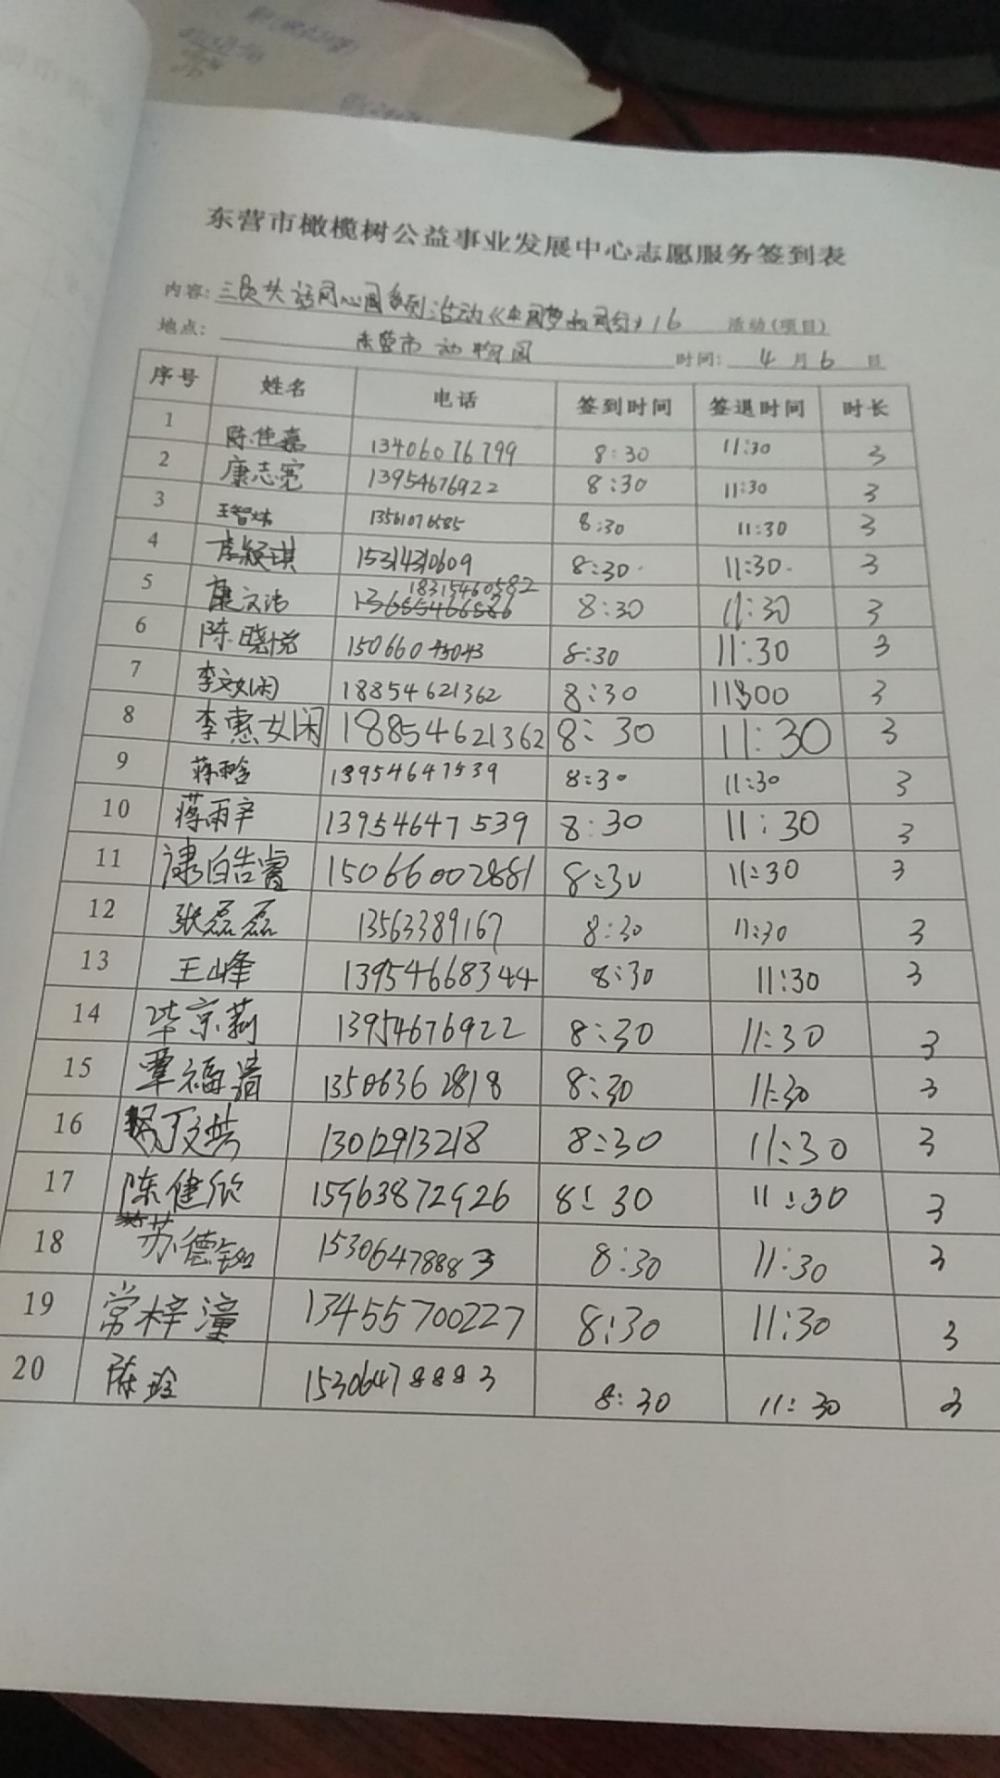 东营市橄榄树公益事业发展中心志愿服务签到表
内容: 同心园系列活动《中国梦 》16 活动(项目)
地点: 东营市动物园 时间: 4 月 6 日
序号 姓名 电话 签到时间 签退时间 时长
1 陈佳嘉 13406076799 8:30 11:30 3
2 康志宽 13954676922 8:30 11:30 3
3 王智炜 13561076585 8:30 11:30 3
4 李颍琪 15314310609 8:30 11:30 3
5 康文洁 18315460582 8:30 11:30 3
6 陈晓悦 15066045043 8:30 11:30 3
7 李文娴 18854621362 8:30 3
8 李惠娴 18854621362 8:30 11:30 3
9 蒋雨含 13954647539 8:30 11:30 3
10 蒋雨辛 13954647539 8:30 11:30 3
11 皓睿 15066002881 8:30 11:30 3
12 张磊磊 13563389167 8:30 11:30 3
13 王峰 13954668344 8:30 11:30 3
14 毕京莉 13954676922 8:30 11:30 3
15 覃福清 13506362818 8:30 11:30 3
16 丁文 13012913218 8:30 11:30 3
17 陈健欣 15963872926 8:30 11:30 3
18 苏德钿 15306478883 8:30 11:30 3
19 常梓潼 13455700227 8:30 11:30 3
20 陈玲 15306478883 8:30 11:30 3